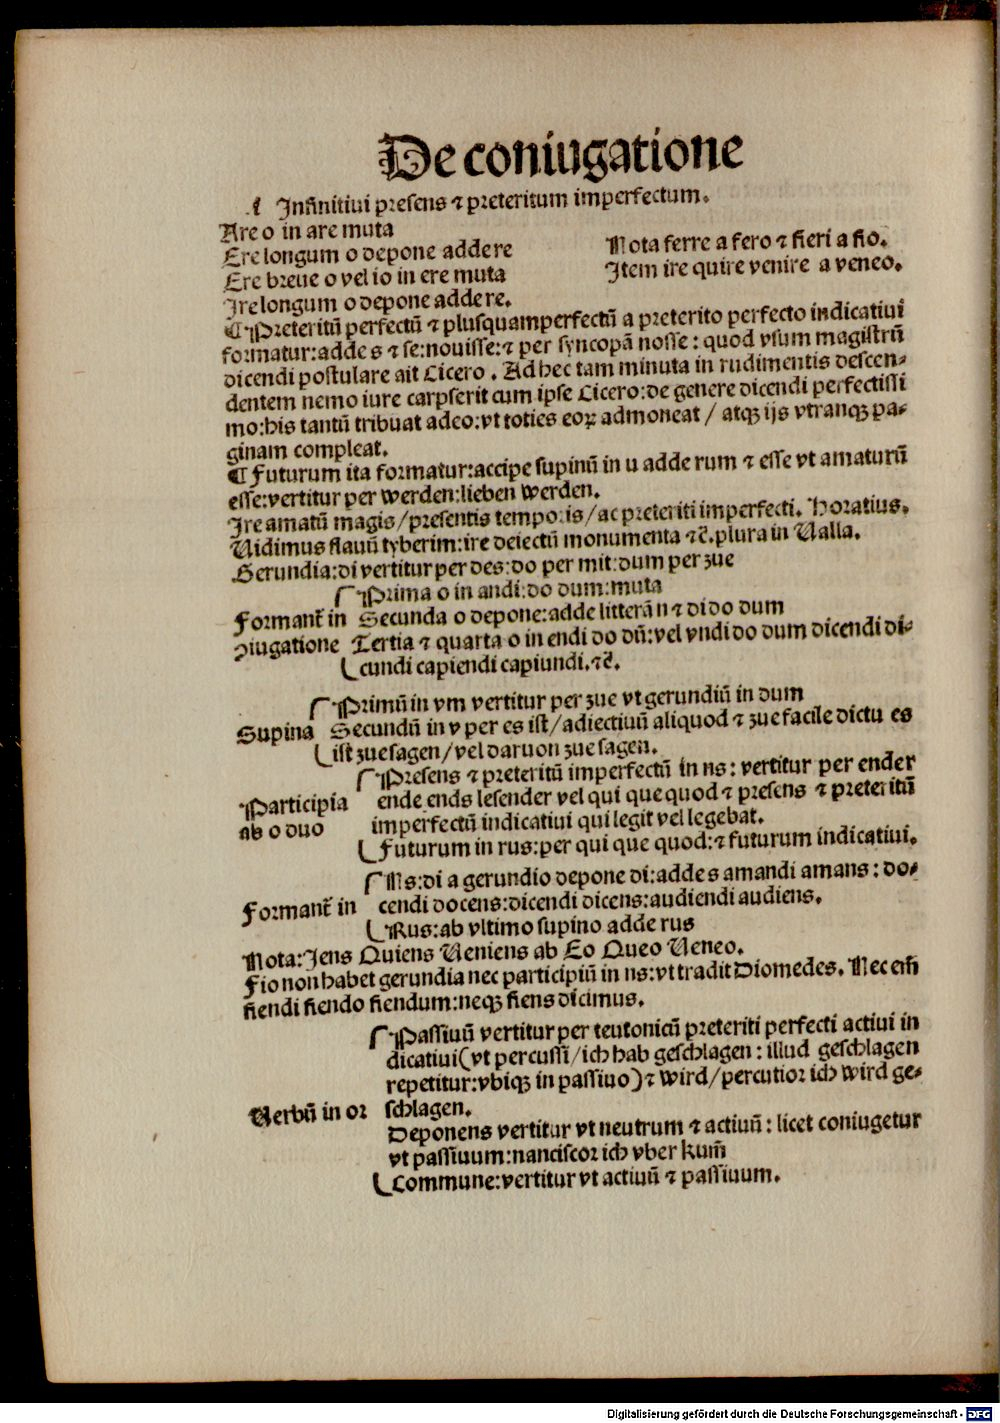 De coniugatione
¶ Infinitiui presens ⁊ preteritum imperfectum.
Are o in are muta
Ere longum o depone addere
Ere breue o vel io in ere muta
Ire longum o depone addere.
Nota ferre a fero ⁊ fieri a fio.
Item ire quire venire a veneo.
¶ Preteritū perfectū ⁊ plusquamperfectū a preterito perfecto indicatiui
formatur:adde s ⁊ se:nouisse:⁊ per syncopā nosse: quod vsum magistrū
dicendi postulare ait Cicero. Ad hec tam minuta in rudimentis descen-
dentem nemo iure carpserit cum ipse Cicero:de genere dicendi perfectissi
mo:his tantū tribuat adeo:vt toties eoꝝ admoneat / atqꝫ ijs vtranqꝫ pa-
ginam compleat.
¶ Futurum ita formatur:accipe supinū in u adde rum ⁊ esse vt amaturū
esse:vertitur per werden:lieben werden.
Ire amatū magis/presentis temporis/ac preteriti imperfecti. Horatius.
Uidimus flauū tyberim:ire deiectū monumenta ⁊c̄.plura in Ualla.
Gerundia:di vertitur per des:do per mit:dum per zue
Prima o in andi:do dum:muta
Formant̄ in Secunda o depone:adde litterā n ⁊ di do dum
ↄiugatione Tertia ⁊ quarta o in endi do dū:vel vndi do dum dicendi di-
cundi capiendi capiundi.⁊c̄.
Primū in vm vertitur per zue vt gerundiū in dum
Supina Secundū in v per es ist/adiectiuū aliquod ⁊ zue facile dictu es
ist zue sagen/vel daruon zue sagen.
Presens ⁊ preteritū imperfectū in ns: vertitur per ender
Participia ende ends lesender vel qui que quod ⁊ presens ⁊ preteritū
ab o duo imperfectū indicatiui qui legit vel legebat.
Futurum in rus:per qui que quod:⁊ futurum indicatiui.
Ns:di a gerundio depone di:adde s amandi amans: do-
Formant̄ in cendi docens:dicendi dicens:audiendi audiens.
Rus:ab vltimo supino adde rus
Nota:Iens Quiens Ueniens ab Eo Queo Ueneo.
Fio non habet gerundia nec participiū in ns:vt tradit Diomedes. Nec em̄
fiendi fiendo fiendum:neqꝫ fiens dicimus.
Passiuū vertitur per teutonicū preteriti perfecti actiui in
dicatiui(vt percussi/ich hab geschlagen: illud geschlagen
repetitur:vbiqꝫ in passiuo)⁊ wird/percutior ich wird ge-
Uerbū in or schlagen.
Deponens vertitur vt neutrum ⁊ actiuū: licet coniugetur
vt passiuum:nanciscor ich vber kum̄
Commune:vertitur vt actiuū ⁊ passiuum.
Digitalisierung gefördert durch die Deutsche Forschungsgemeinschaft - DFG